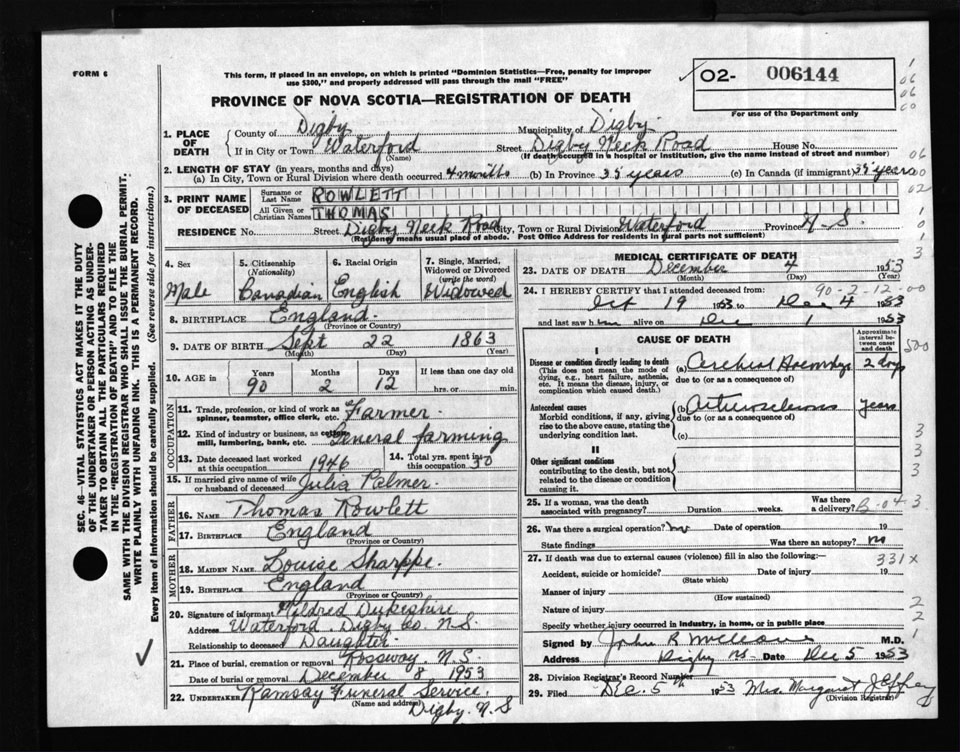 FORM 6
This form, if placed in an envelope, on which is printed "Dominion Statistics—Free, penalty for improper
use $300," and properly addressed will pass through the mail "FREE"
02- 006144
For use of the Department only
PROVINCE OF NOVA SCOTIA—REGISTRATION OF DEATH
1. PLACE OF DEATH County of Digby Municipality of Digby
If in City or Town Waterford Street Digby Neck Road House No.
(Name) (If death occurred in a hospital or institution, give the name instead of street and number)
2. LENGTH OF STAY (in years, months and days)
(a) In City, Town or Rural Division where death occurred 4 months (b) In Province 35 years (c) In Canada (if immigrant) 35 years
3. PRINT NAME OF DECEASED Surname or Last Name ROWLETT
All Given or Christian Names THOMAS
RESIDENCE No. Street Digby Neck Road City, Town or Rural Division Waterford Province N.S.
(Residency means usual place of abode. Post Office Address for residents in rural parts not sufficient)
4. Sex Male
5. Citizenship (Nationality) Canadian
6. Racial Origin English
7. Single, Married, Widowed or Divorced (write the word) Widowed
8. BIRTHPLACE England
(Province or Country)
9. DATE OF BIRTH Sept 22 1863
(Month) (Day) (Year)
10. AGE in Years Months Days If less than one day old
90 2 12 hrs. or min.
OCCUPATION
11. Trade, profession, or kind of work as spinner, teamster, office clerk, etc. Farmer
12. Kind of industry or business, as cotton mill, lumbering, bank, etc. General farming
13. Date deceased last worked at this occupation 1946
14. Total yrs. spent in this occupation 30
15. If married give name of wife or husband of deceased Julia Palmer
FATHER
16. Name Thomas Rowlett
17. BIRTHPLACE England
(Province or Country)
MOTHER
18. MAIDEN NAME Louise Sharppe
19. BIRTHPLACE England
(Province or Country)
20. Signature of informant Mildred Dukeshire
Address Waterford, Digby Co. N.S.
Relationship to deceased Daughter
21. Place of burial, cremation or removal Rossway, N.S.
Date of burial or removal December 8 1953
22. UNDERTAKER Ramsay Funeral Service,
(Name and address) Digby, N.S
MEDICAL CERTIFICATE OF DEATH
23. DATE OF DEATH December 4 1953
(Month) (Day) (Year)
90-2-12-00
24. I HEREBY CERTIFY that I attended deceased from:
Oct 19 1953 to Dec 4 1953
and last saw him alive on Dec 1 1953
CAUSE OF DEATH
Approximate interval between onset and death
I
Disease or condition directly leading to death (a) Cerebral Hoemrhge 2 days
(This does not mean the mode of dying, e.g., heart failure, asthenia, etc. It means the disease, injury, or complication which caused death.)
due to (or as a consequence of)
Antecedent causes (b) Arteriosclerosis years
Morbid conditions, if any, giving rise to the above cause, stating the underlying condition last.
due to (or as a consequence of)
(c)
II
Other significant conditions
contributing to the death, but not related to the disease or condition causing it.
25. If a woman, was the death associated with pregnancy? Duration weeks. Was there a delivery?
26. Was there a surgical operation? no Date of operation 19
State findings Was there an autopsy? no
27. If death was due to external causes (violence) fill in also the following:—
331X
Accident, suicide or homicide? Date of injury 19
(State which)
Manner of injury
(How sustained)
Nature of injury
Specify whether injury occurred in Industry, in home, or in public place
Signed by John R M.D.
Address Digby NS Date Dec 5 1953
28. Division Registrar's Record Number
29. Filed Dec. 5th 1953 Mrs. Margaret Jeffrey
(Division Registrar)
SEC. 46—VITAL STATISTICS ACT MAKES IT THE DUTY
OF THE UNDERTAKER OR PERSON ACTING AS UNDER-
TAKER TO OBTAIN ALL THE PARTICULARS REQUIRED
IN THE "REGISTRATION OF DEATH" AND TO FILE THE
SAME WITH THE DIVISION REGISTRAR WHO SHALL ISSUE THE BURIAL PERMIT.
WRITE PLAINLY WITH UNFADING INK. THIS IS A PERMANENT RECORD.
Every item of information should be carefully supplied. (See reverse side for instructions.)